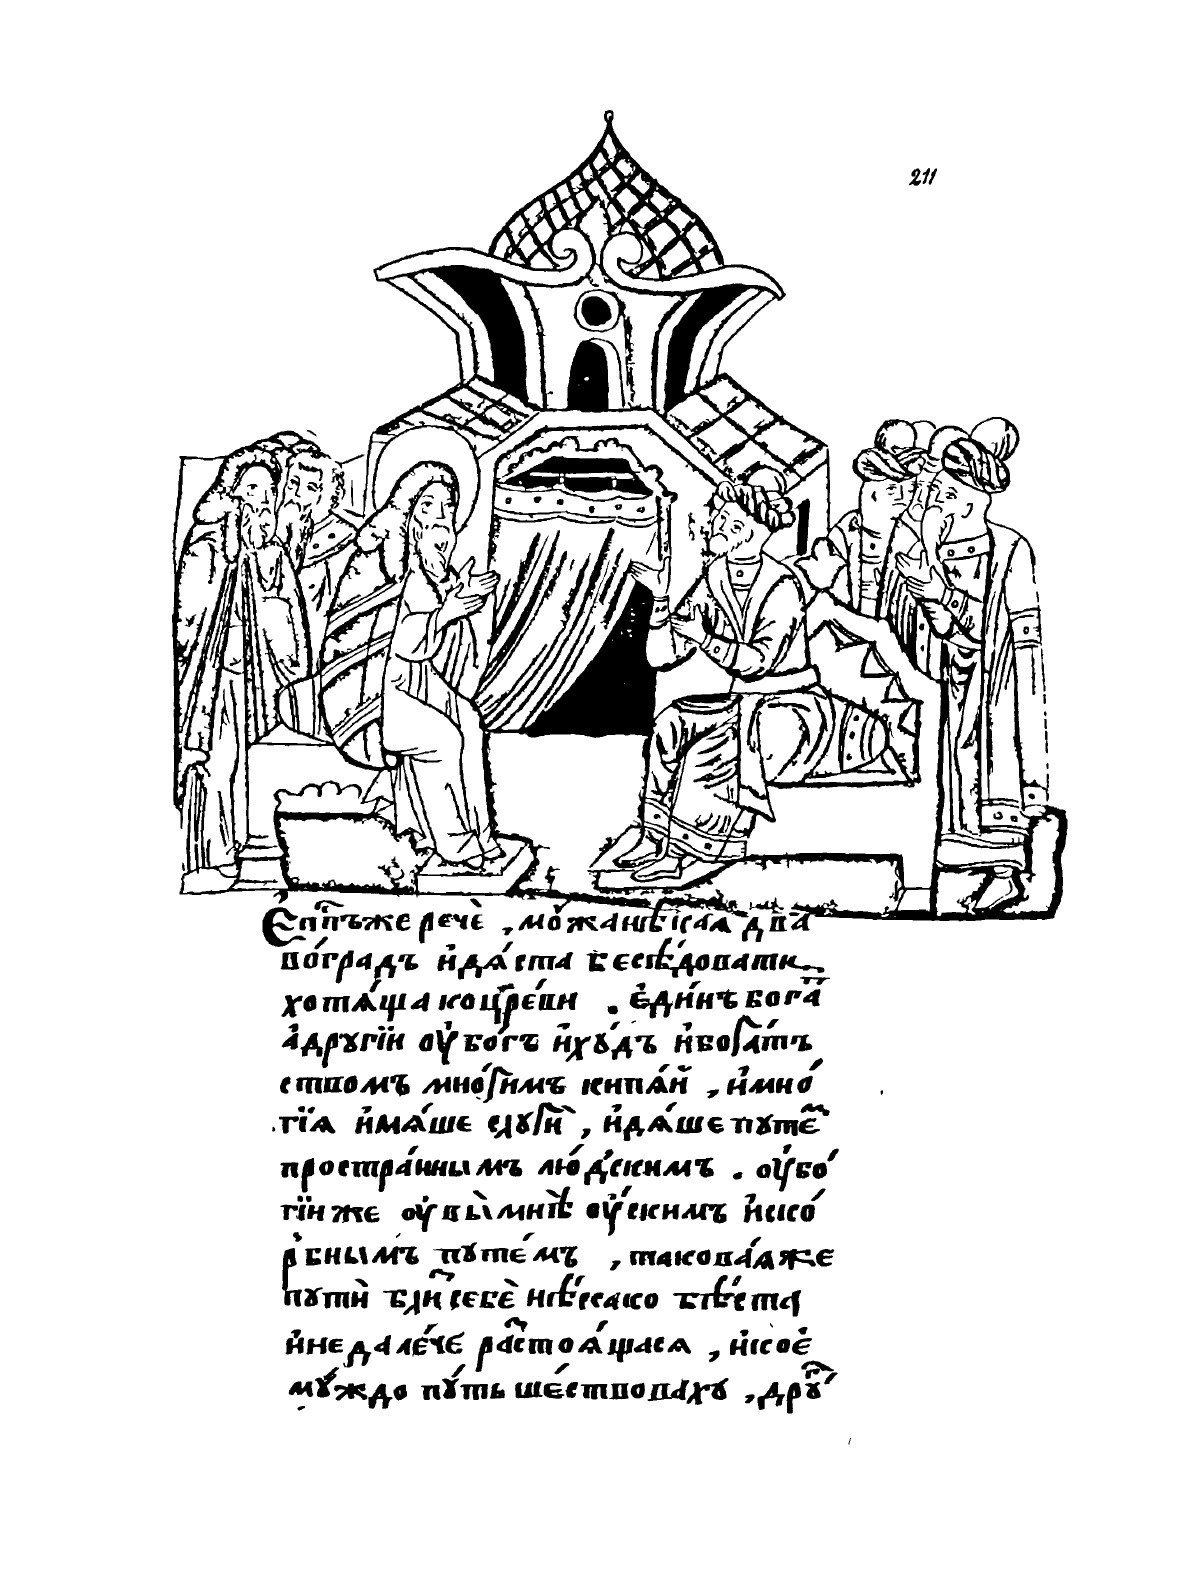 211
Єпⷭ҇пъже речѐ , мо́жа нѣ́кая два
во́градъ и҆дѧ́ста бесѣ́довати
хотѧ́ща ко цр҃е́ви . є҆ди́нъ бога̀
а҆другі́и ѹ҆бо́гъ и҆хѹ́дъ и҆бога́тъ
ствомъ мно́гимъ кипѧ́й , и҆мно́
гїѧ и҆мѧ́ше слѹги̑ , и҆дѧ́ше пѹте́ᷨ
простра́ннымъ людскимъ . ѹ҆бо́
гїи же ѹ҆вы̀ мнѣ̀ ѹ҆́скимъ и҆ско́
рбнымъ пѹте́мъ , такова́ѧже
пѹтѝ бли̑ себѐ нѣ́сако бѣ́ста
и҆недале́че растоѧ́щасѧ , и҆кое҆
мѹ́ждо пѹ́ть ше́ствовахѹ , дрѹ́ⷢ